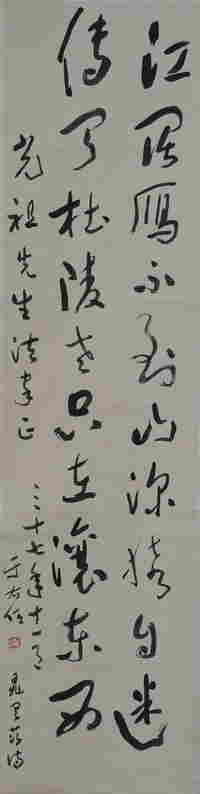 江闊雁不到山深猿自迷
傳聞杜陵老只在瀼東西
光祖先生法家正
三十七年十一月
于右任
晁具茨詩